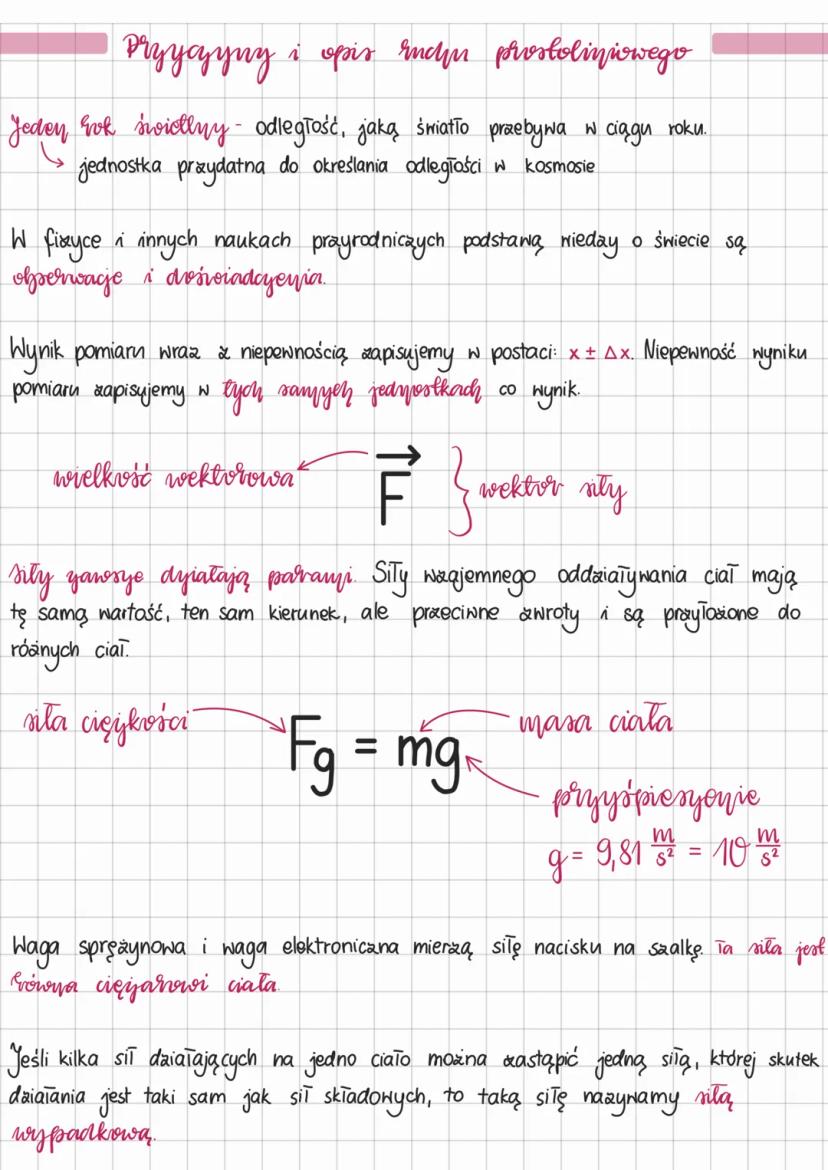 Przyczyny i opis ruchu prostoliniowego
Jeden rok świetlny - odległość, jaką światło przebywa w ciągu roku.
jednostka przydatna do określania odległości w kosmosie
W fizyce i innych naukach przyrodniczych podstawą wiedzy o świecie są
obserwacje i doświadczenia.
Wynik pomiaru wraz z niepewnością zapisujemy w postaci: x ± Δx. Niepewność wyniku
pomiaru zapisujemy w tych samych jednostkach co wynik.
wielkość wektorowa F⃗ } wektor siły
siły zawsze działają parami. Siły wzajemnego oddziaływania ciał mają
tę samą wartość, ten sam kierunek, ale przeciwne zwroty i są przyłożone do
różnych ciał.
siła ciężkości Fg = mg masa ciała
przyśpieszenie
g = 9,81 m/s² = 10 m/s²
Waga sprężynowa i waga elektroniczna mierzą siłę nacisku na szalkę. Ta siła jest
równa ciężarowi ciała.
Jeśli kilka sił działających na jedno ciało można zastąpić jedną siłą, której skutek
działania jest taki sam jak sił składowych, to taką siłę nazywamy siłą
wypadkową.